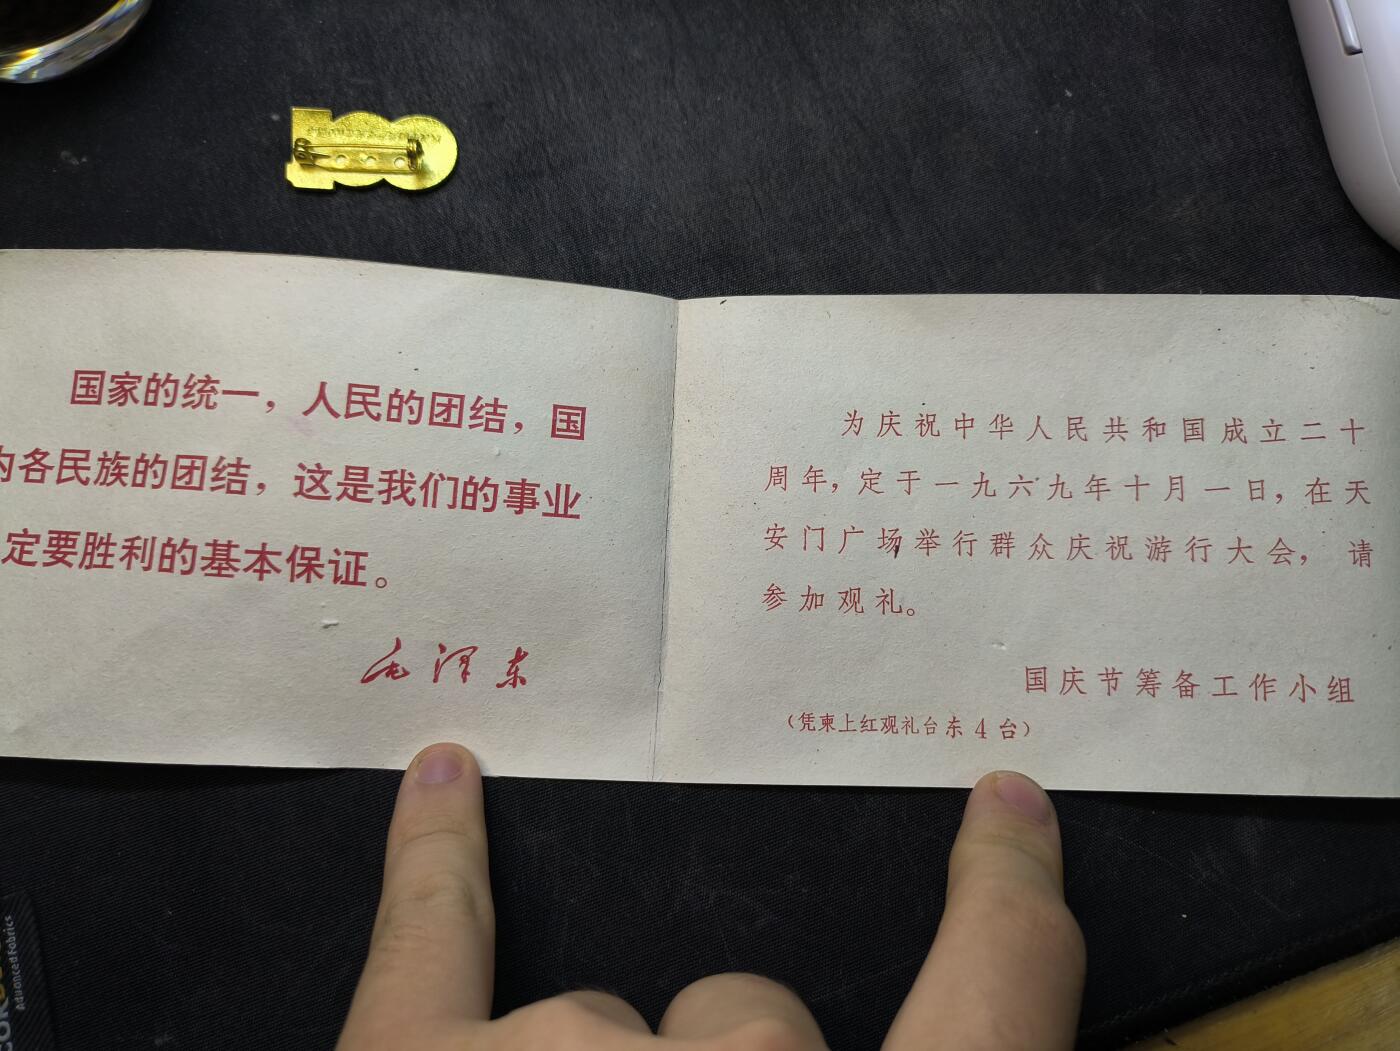 国家的统一，人民的团结，国
内各民族的团结，这是我们的事业
定要胜利的基本保证。
毛泽东
为庆祝中华人民共和国成立二十
周年，定于一九六九年十月一日，在天
安门广场举行群众庆祝游行大会，请
参加观礼。
国庆节筹备工作小组
（凭柬上红观礼台东4台）
Advanced Fabrics